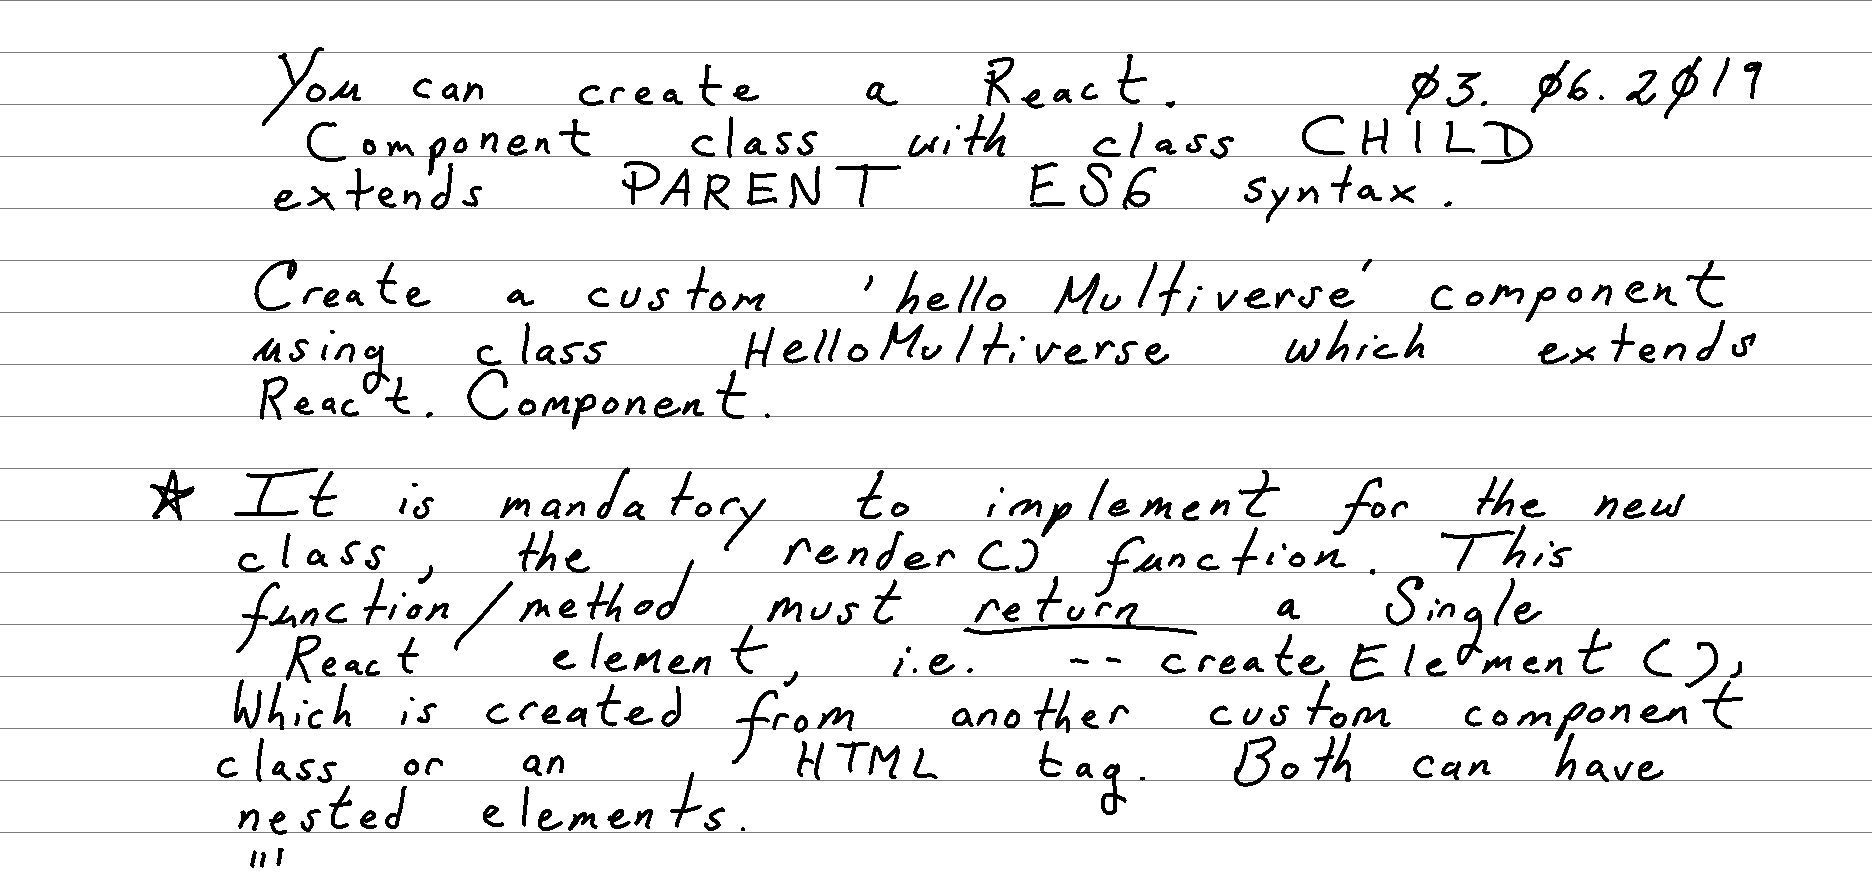 You can create a React. 03. 06. 2019
Component class with class CHILD
extends PARENT ES6 syntax.
Create a custom 'hello Multiverse' component
using class HelloMultiverse which extends
React. Component.
☆ It is mandatory to implement for the new
class, the render() function. This
function/method must return a Single
React element, i.e. -- createElement(),
Which is created from another custom component
class or an HTML tag. Both can have
nested elements.
"'